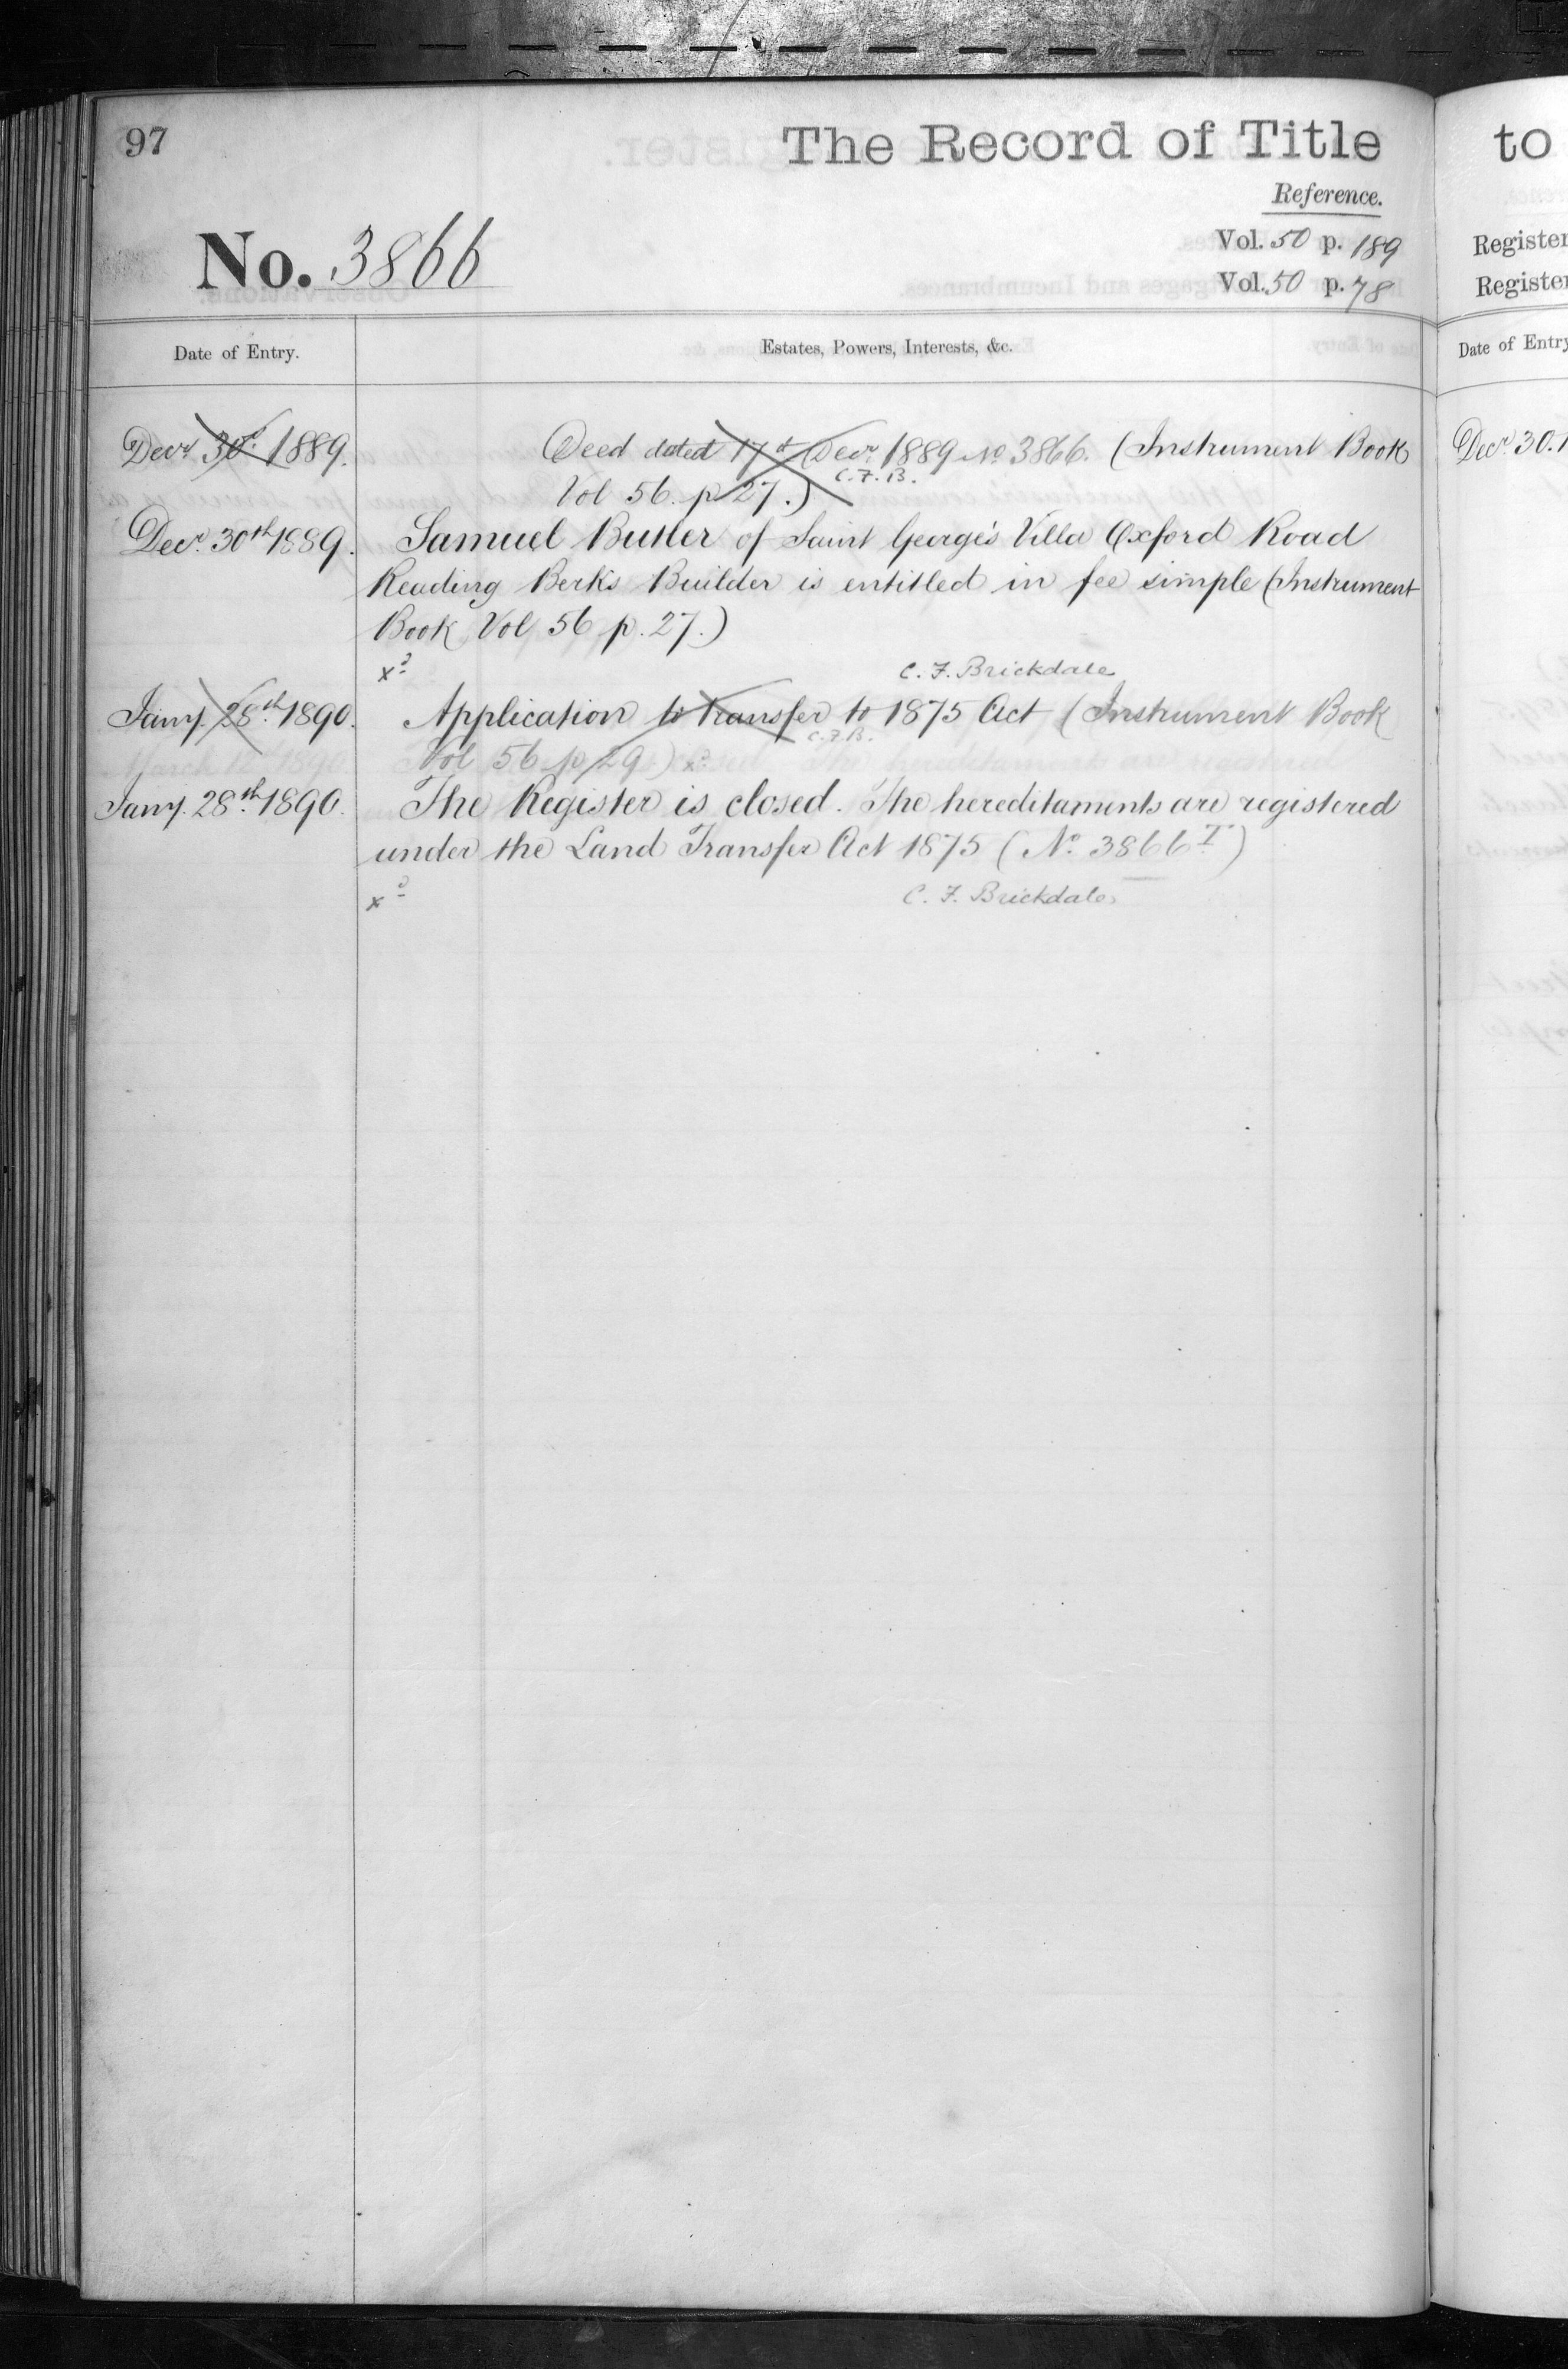 97
The Record of Title
Reference.
No. 3866
Vol. 50 p. 189
Vol. 50 p. 78
Date of Entry.
Estates, Powers, Interests, &c.
Decr 30th 1889.
Deed dated 17th Decr 1889 No 3866. (Instrument Book
C.F.B.
Vol 56. p 27.)
Decr. 30th 1889.
Samuel Butler of Saint George's Villa Oxford Road
Reading Berks Builder is entitled in fee simple (Instrument
Book Vol 56 p. 27.)
C. F. Brickdale
Jany. 28th 1890.
Application to transfer to 1875 Act (Instrument Book
C.F.B.
Vol 56 p 29)
Jany. 28th 1890.
The Register is closed. The hereditaments are registered
under the Land Transfer Act 1875 (No. 3866 T)
C. F. Brickdale
to
Register
Register
Date of Entry
Decr 30. 1